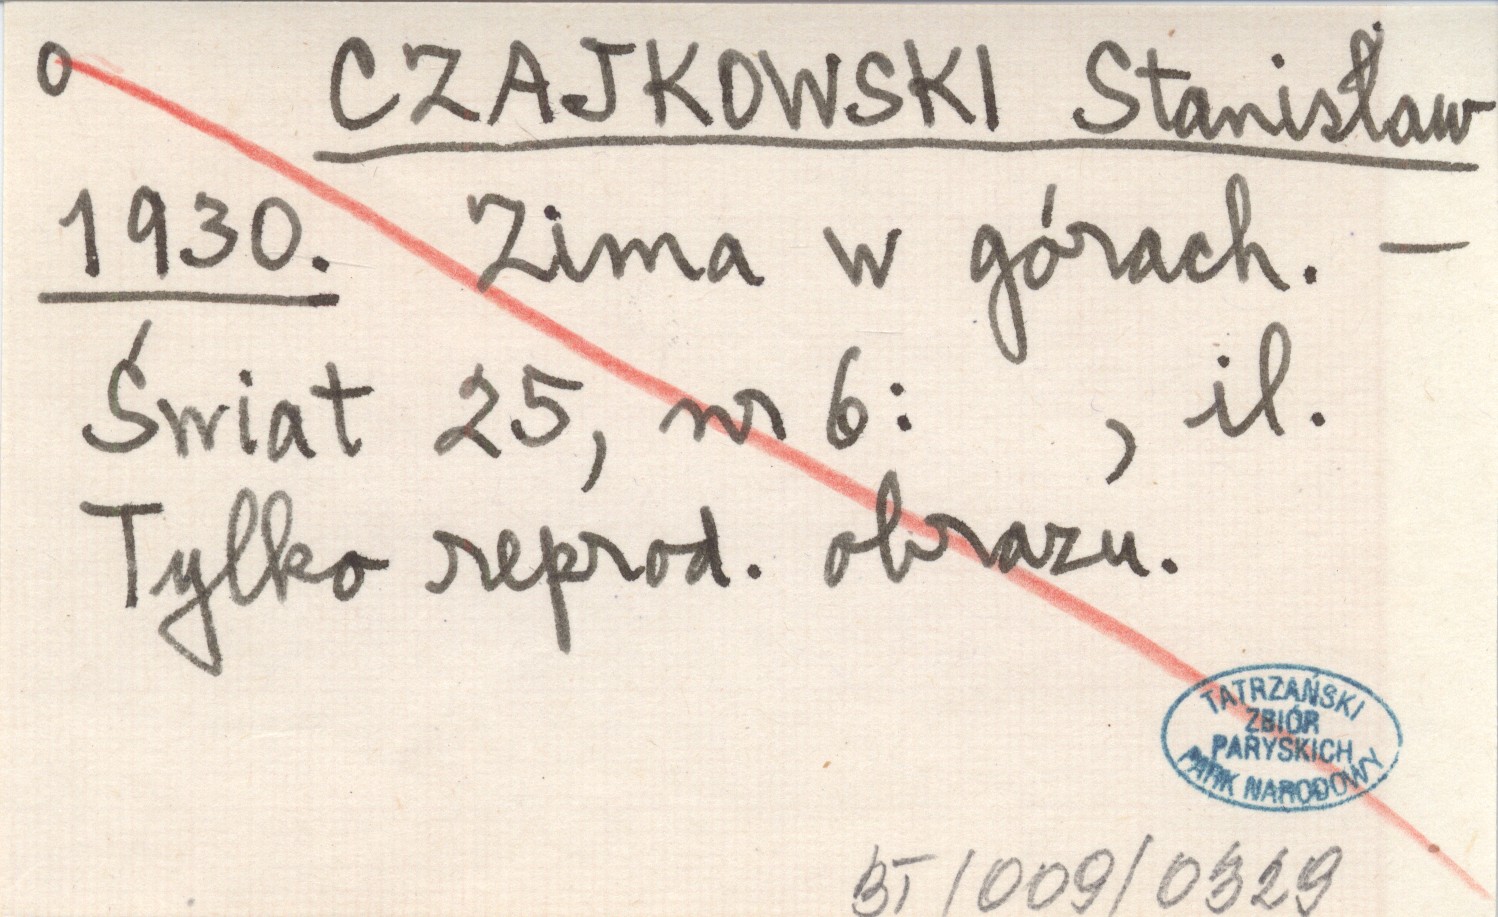 o CZAJKOWSKI Stanisław
1930. Zima w górach. —
Świat 25, nr 6: , il.
Tylko reprod. obrazu.
TATRZAŃSKI
ZBIÓR
PARYSKICH
PARK NARODOWY
BT/009/0329